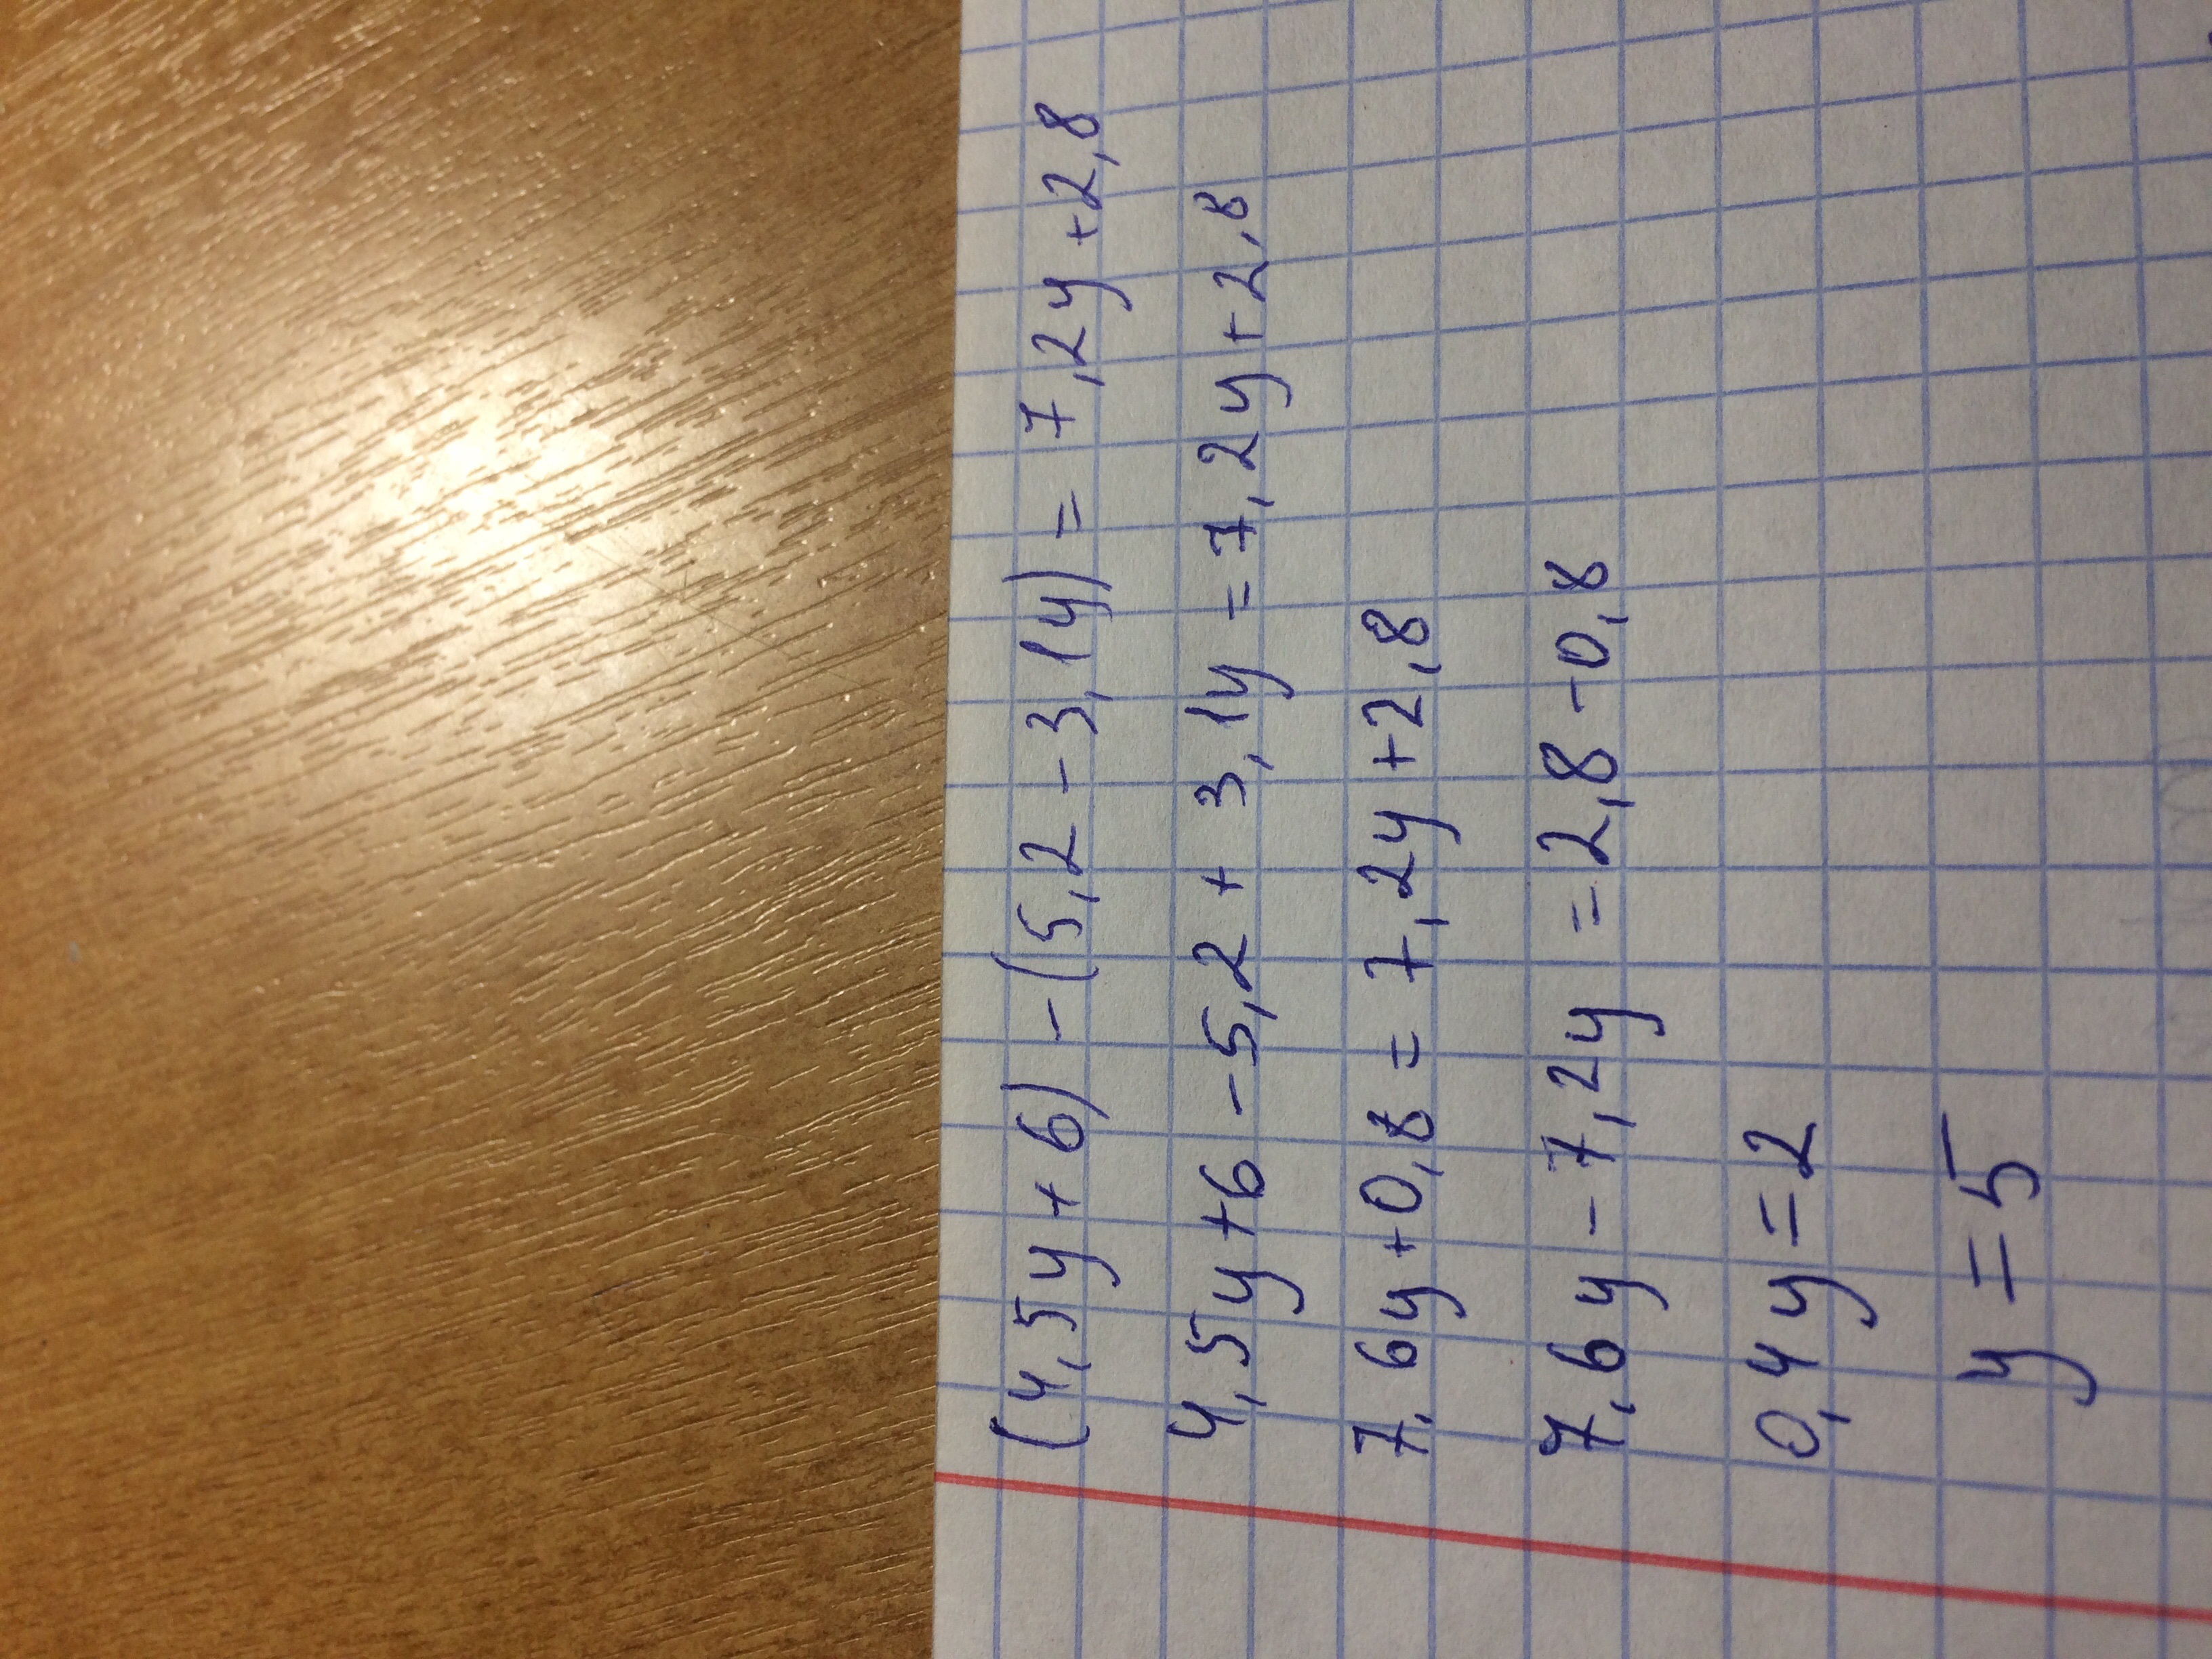 (4,5y+6)-(5,2-3,1y)=7,2y+2,8
4,5y+6-5,2+3,1y=7,2y+2,8
7,6y+0,8=7,2y+2,8
7,6y-7,2y=2,8-0,8
0,4y=2
y=5